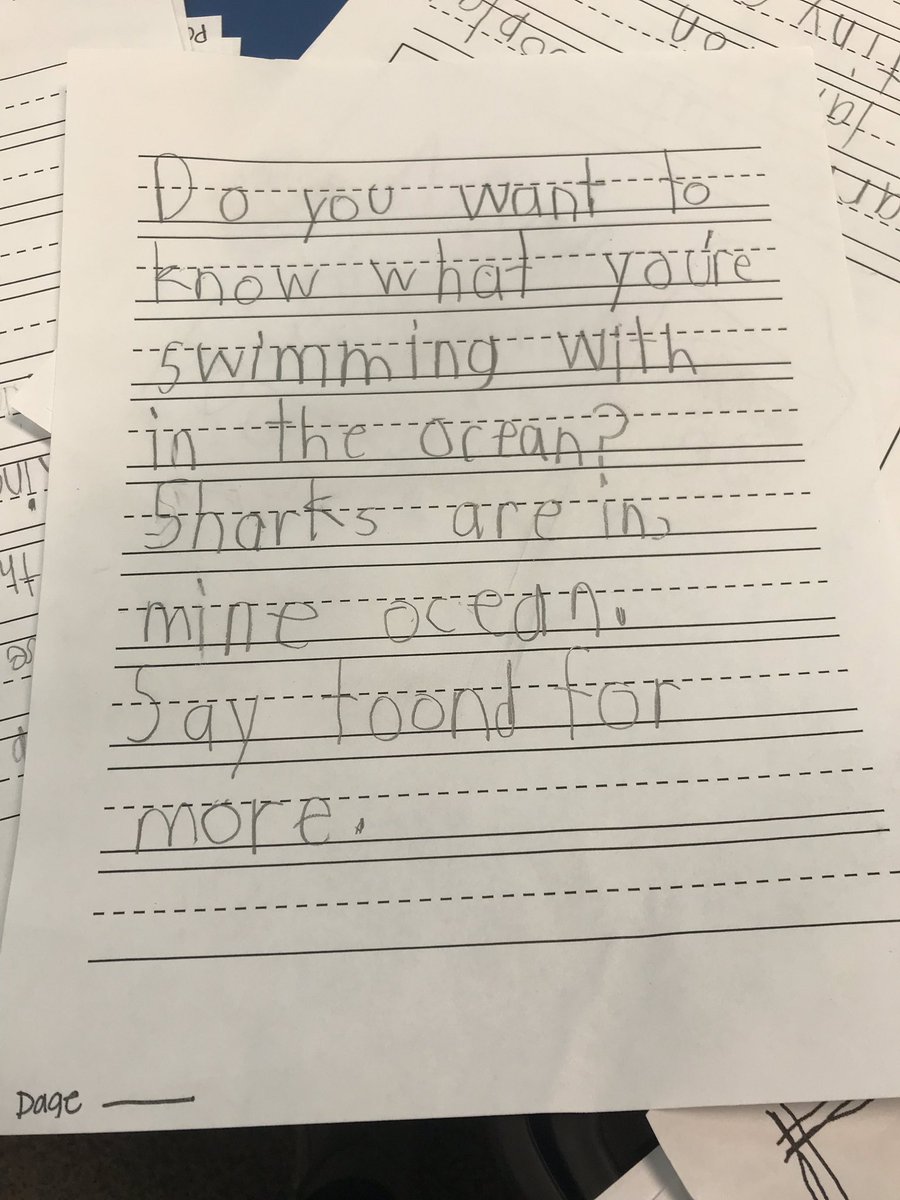 Do you want to
know what you're
swimming with
in the ocean?
Sharks are in,
mine ocean.
Say toond for
more.
Page